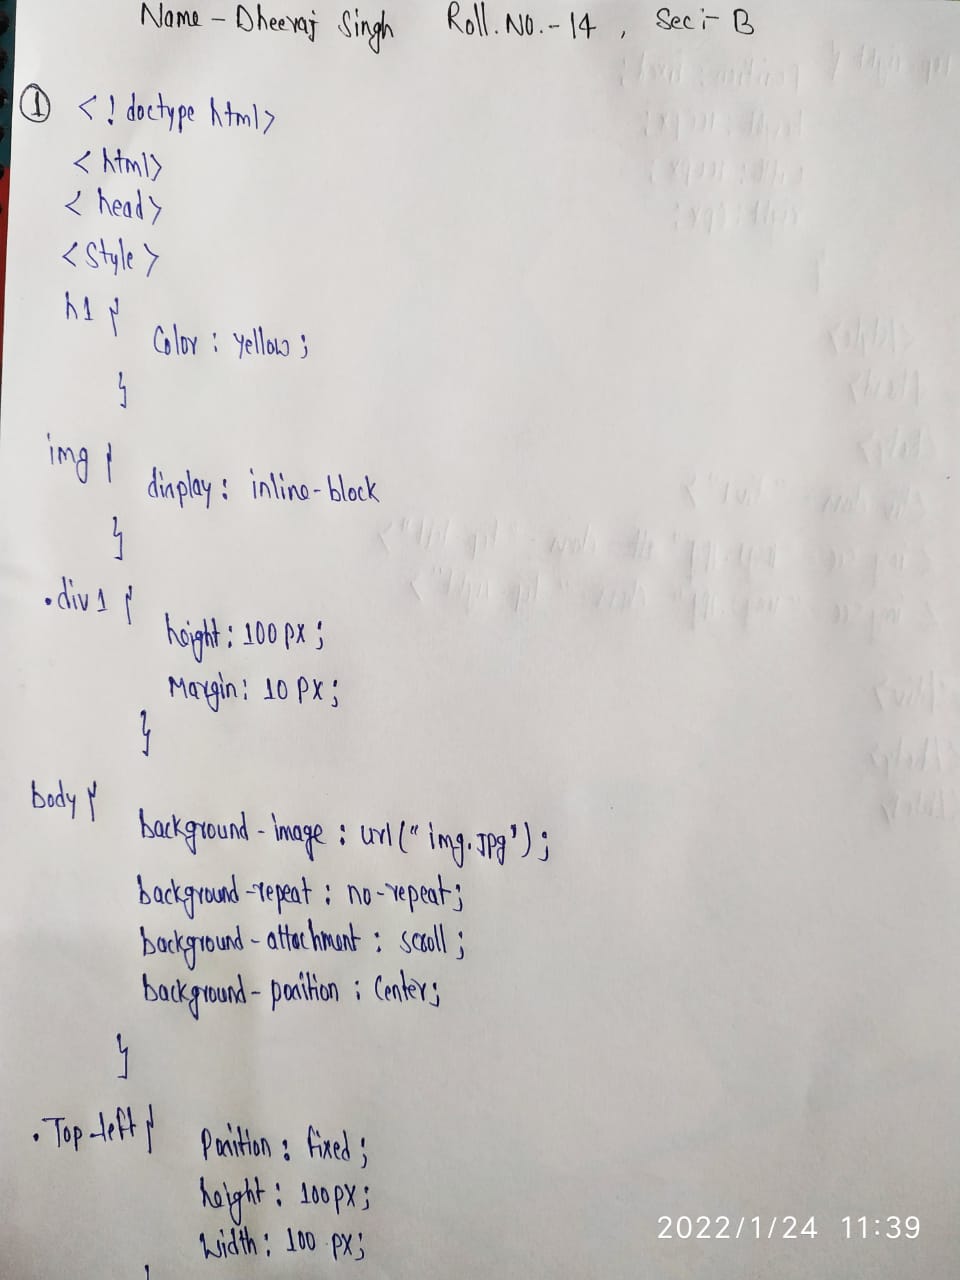 Name - Dheeraj Singh Roll.NO.-14, Sec:- B
① <! doctype html>
<html>
<head>
<style>
h1 {
Color : yellow ;
}
img {
display : inline-block
}
.div1 {
height : 100 px ;
Margin : 10 px ;
}
body {
background-image : url("img.jpg");
background-repeat : no-repeat;
background-attachment : scroll ;
background-position : Center;
}
.Top-left {
Position : fixed ;
height : 100px ;
Width : 100 px;
2022/1/24 11:39